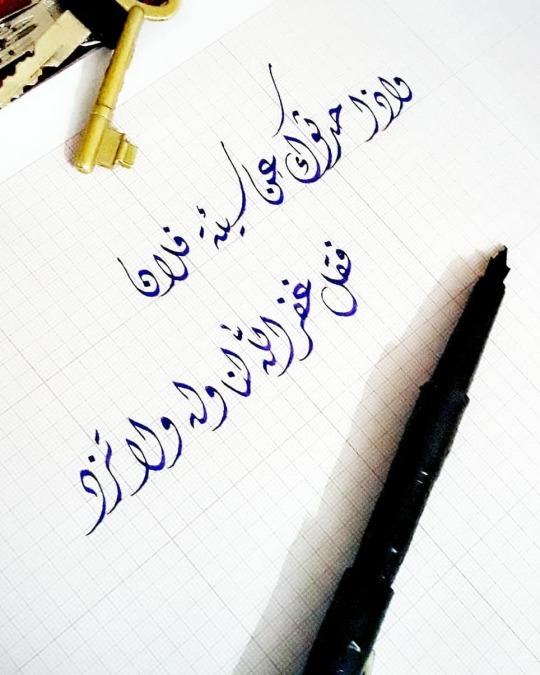 واذا حدثوك عن سيئة فلان
فقل غفر الله لنا وله ولا تزد